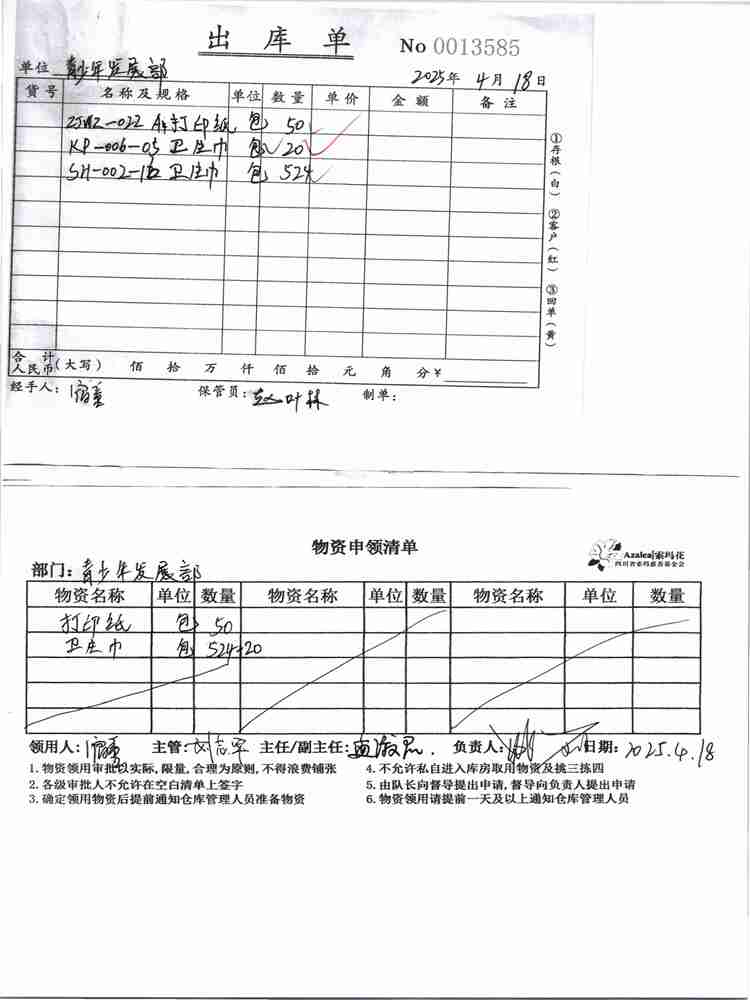 出库单 No 0013585
单位 青少年发展部 2025年 4月 18日
货号 名称及规格 单位 数量 单价 金额 备注
ZJWZ-022 A4打印纸 包 50
KP-006-05 卫生巾 包 20
SH-002-1 卫生巾 包 524
①存根(白) ②客户(红) ③回单(黄)
合计
人民币(大写) 佰 拾 万 仟 佰 拾 元 角 分 ¥
经手人: 保管员:赵叶林 制单:
物资申领清单
Azalea|索玛花
四川省索玛慈善基金会
部门:青少年发展部
物资名称 单位 数量 物资名称 单位 数量 物资名称 单位 数量
打印纸 包 50
卫生巾 包 524+20
领用人: 主管:刘志军 主任/副主任: 负责人: 日期:2025.4.18
1.物资领用审批以实际,限量,合理为原则,不得浪费铺张 4.不允许私自进入库房取用物资及挑三拣四
2.各级审批人不允许在空白清单上签字 5.由队长向督导提出申请,督导向负责人提出申请
3.确定领用物资后提前通知仓库管理人员准备物资 6.物资领用请提前一天及以上通知仓库管理人员